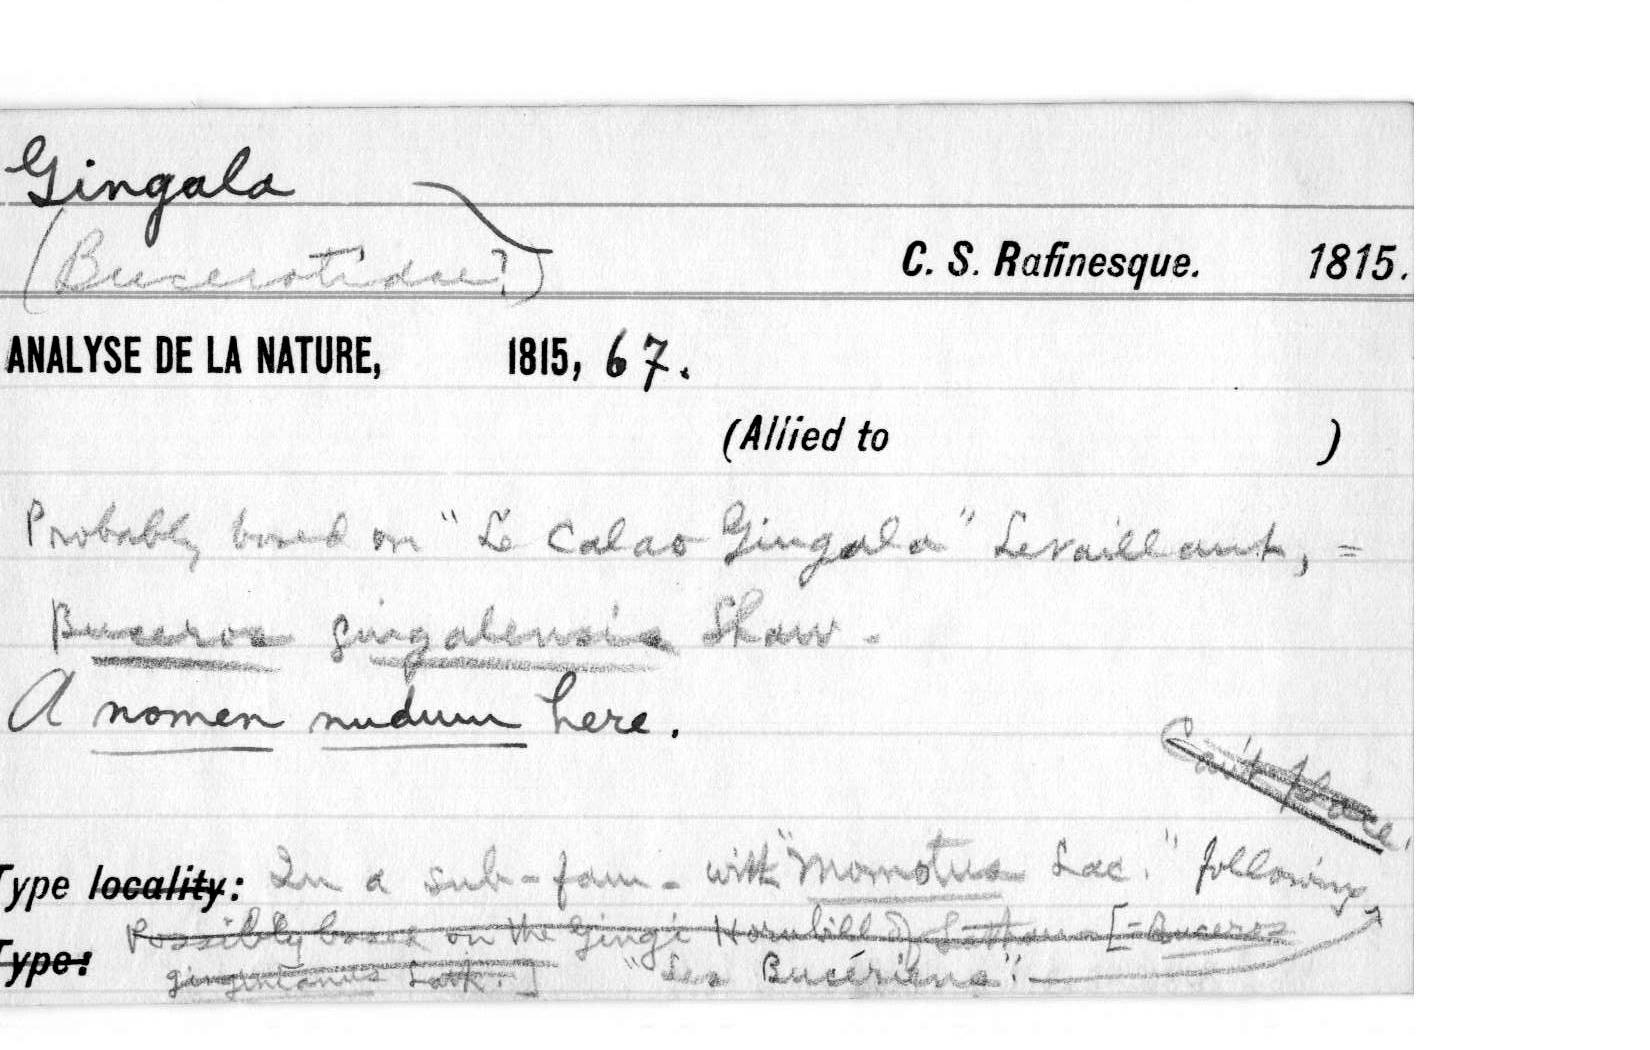 Gingala
(Bucerotidae?)
C. S. Rafinesque. 1815.
ANALYSE DE LA NATURE, 1815, 67.
(Allied to )
Probably based on "Le Calao Gingala" Levaillant, =
Buceros gingalensis Shaw.
A nomen nudum here.
Can't place.
Type locality: In a sub-fam. with "Momotus Lac." following
Possibly based on the Gingi Hornbill of Latham [=Buceros
Type: ginginianus Lath.] "Les Bucériens".